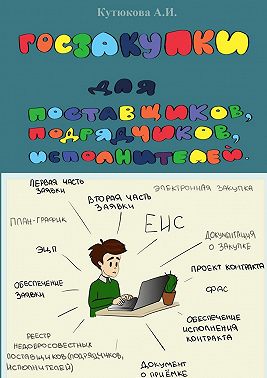 Кутюкова А.И.
ГОСЗАКУПКИ
ДЛЯ
ПОСТАВЩИКОВ,
ПОДРЯДЧИКОВ,
ИСПОЛНИТЕЛЕЙ.
ПЕРВАЯ ЧАСТЬ
ЗАЯВКИ
ЭЛЕКТРОННАЯ ЗАКУПКА
ВТОРАЯ ЧАСТЬ
ЗАЯВКИ
ПЛАН-ГРАФИК
ЕИС
ДОКУМЕНТАЦИЯ
О ЗАКУПКЕ
ЭЦП
ПРОЕКТ КОНТРАКТА
ОБЕСПЕЧЕНИЕ
ЗАЯВКИ
ФАС
ОБЕСПЕЧЕНИЕ
ИСПОЛНЕНИЯ
КОНТРАКТА
РЕЕСТР
НЕДОБРОСОВЕСТНЫХ
ПОСТАВЩИКОВ (ПОДРЯДЧИКОВ,
ИСПОЛНИТЕЛЕЙ)
ДОКУМЕНТ
О ПРИЁМКЕ